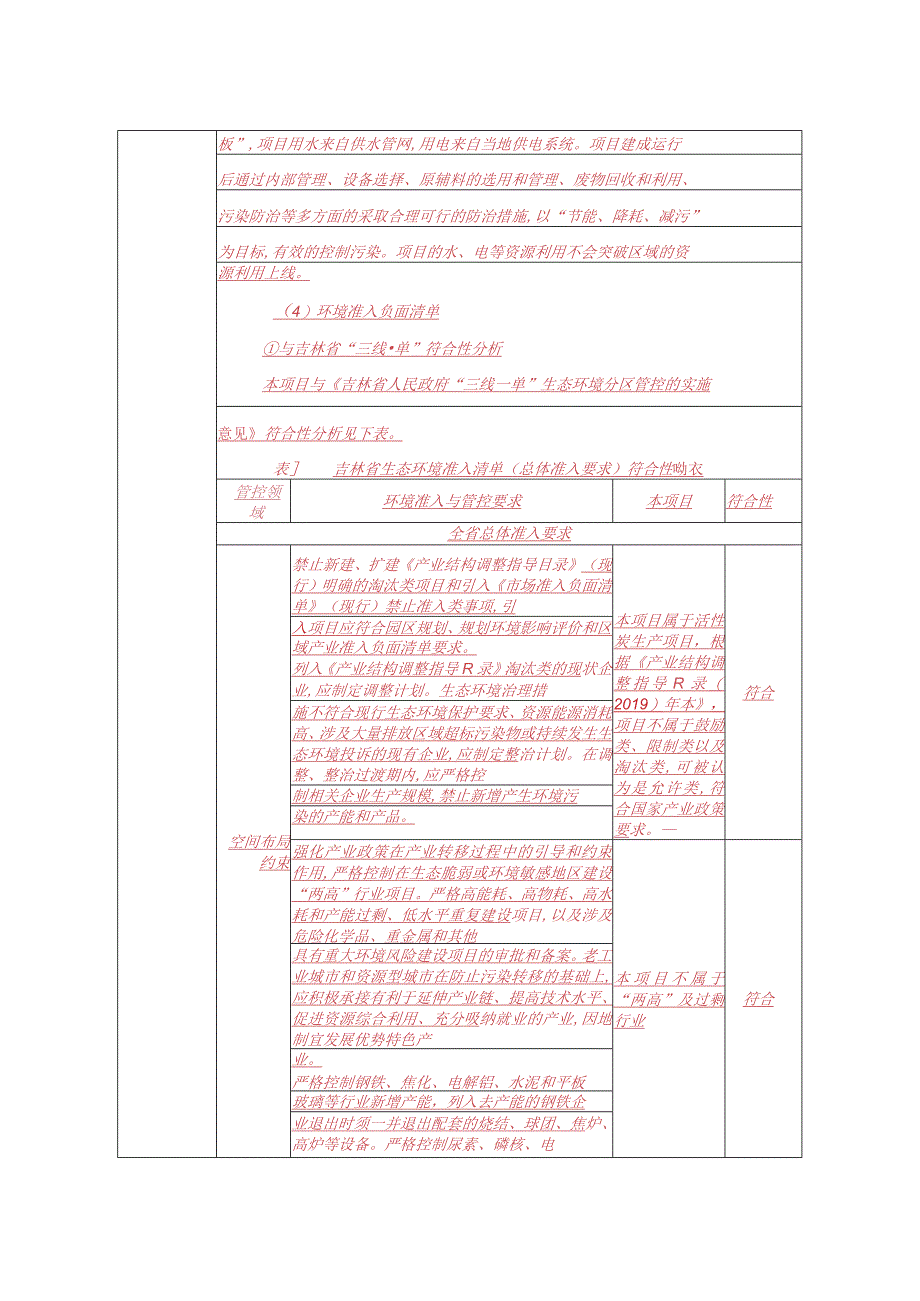 板”,项目用水来自供水管网,用电来自当地供电系统。项目建成运行
后通过内部管理、设备选择、原辅料的选用和管理、废物回收和利用、
污染防治等多方面的采取合理可行的防治措施,以“节能、降耗、减污”
为目标,有效的控制污染。项目的水、电等资源利用不会突破区域的资
源利用上线。
（4）环境准入负面清单
①与吉林省“三线•单”符合性分析
本项目与《吉林省人民政府“三线一单”生态环境分区管控的实施
意见》符合性分析见下表。
表］ 吉林省生态环境准入清单（总体准入要求）符合性呦衣
管控领
域
环境准入与管控要求
本项目
符合性
全省总体准入要求
空间布局
约束
禁止新建、扩建《产业结构调整指导目录》（现
行）明确的淘汰类项目和引入《市场准入负面清
单》（现行）禁止准入类事项,引
入项目应符合园区规划、规划环境影响评价和区
域产业准入负面清单要求。
列入《产业结构调整指导R录》淘汰类的现状企
业,应制定调整计划。生态环境治理措
施不符合现行生态环境保护要求、资源能源消耗
高、涉及大量排放区域超标污染物或持续发生生
态环境投诉的现有企业,应制定整治计划。在调
整、整治过渡期内,应严格控
制相关企业生产规模,禁止新增产生环境污
染的产能和产品。
本项目属于活性
炭生产项目，根
据《产业结构调
整指导R录（
2019）年本》，
项目不属于鼓励
类、限制类以及
淘汰类,可被认
为是允许类,符
合国家产业政策
要求。—
符合
强化产业政策在产业转移过程中的引导和约束
作用,严格控制在生态脆弱或环境敏感地区建设
“两高”行业项目。严格高能耗、高物耗、高水
耗和产能过剩、低水平重复建设项目,以及涉及
危险化学品、重金属和其他
具有重大环境风险建设项目的审批和备案。老工
业城市和资源型城市在防止污染转移的基础上,
应积极承接有利于延伸产业链、提高技术水平、
促进资源综合利用、充分吸纳就业的产业,因地
制宜发展优势特色产
业。
本项目不属于
“两高”及过剩
行业
符合
严格控制钢铁、焦化、电解铝、水泥和平板
玻璃等行业新增产能，列入去产能的钢铁企
业退出时须一并退出配套的烧结、球团、焦炉、
高炉等设备。严格控制尿素、磷核、电